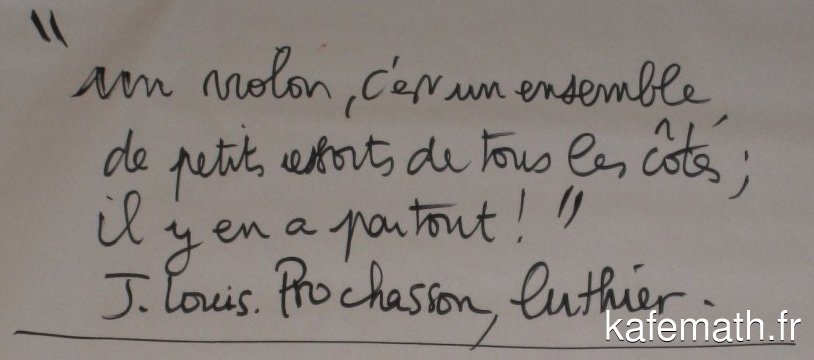 "un violon, c'est un ensemble
de petits ressorts de tous les côtés ;
il y en a partout ! "
J. Louis. Prochasson, luthier.
kafemath.fr